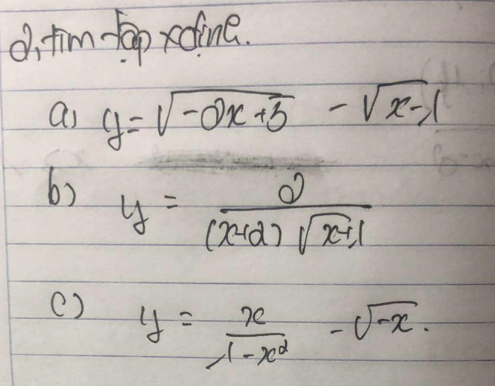 2, tìm tập xđịnh.
a) y = √(-2x+3) - √(x-1)
b) y = 2 / ((x+2)√(x+1))
c) y = x / (1-x²) - √(-x).